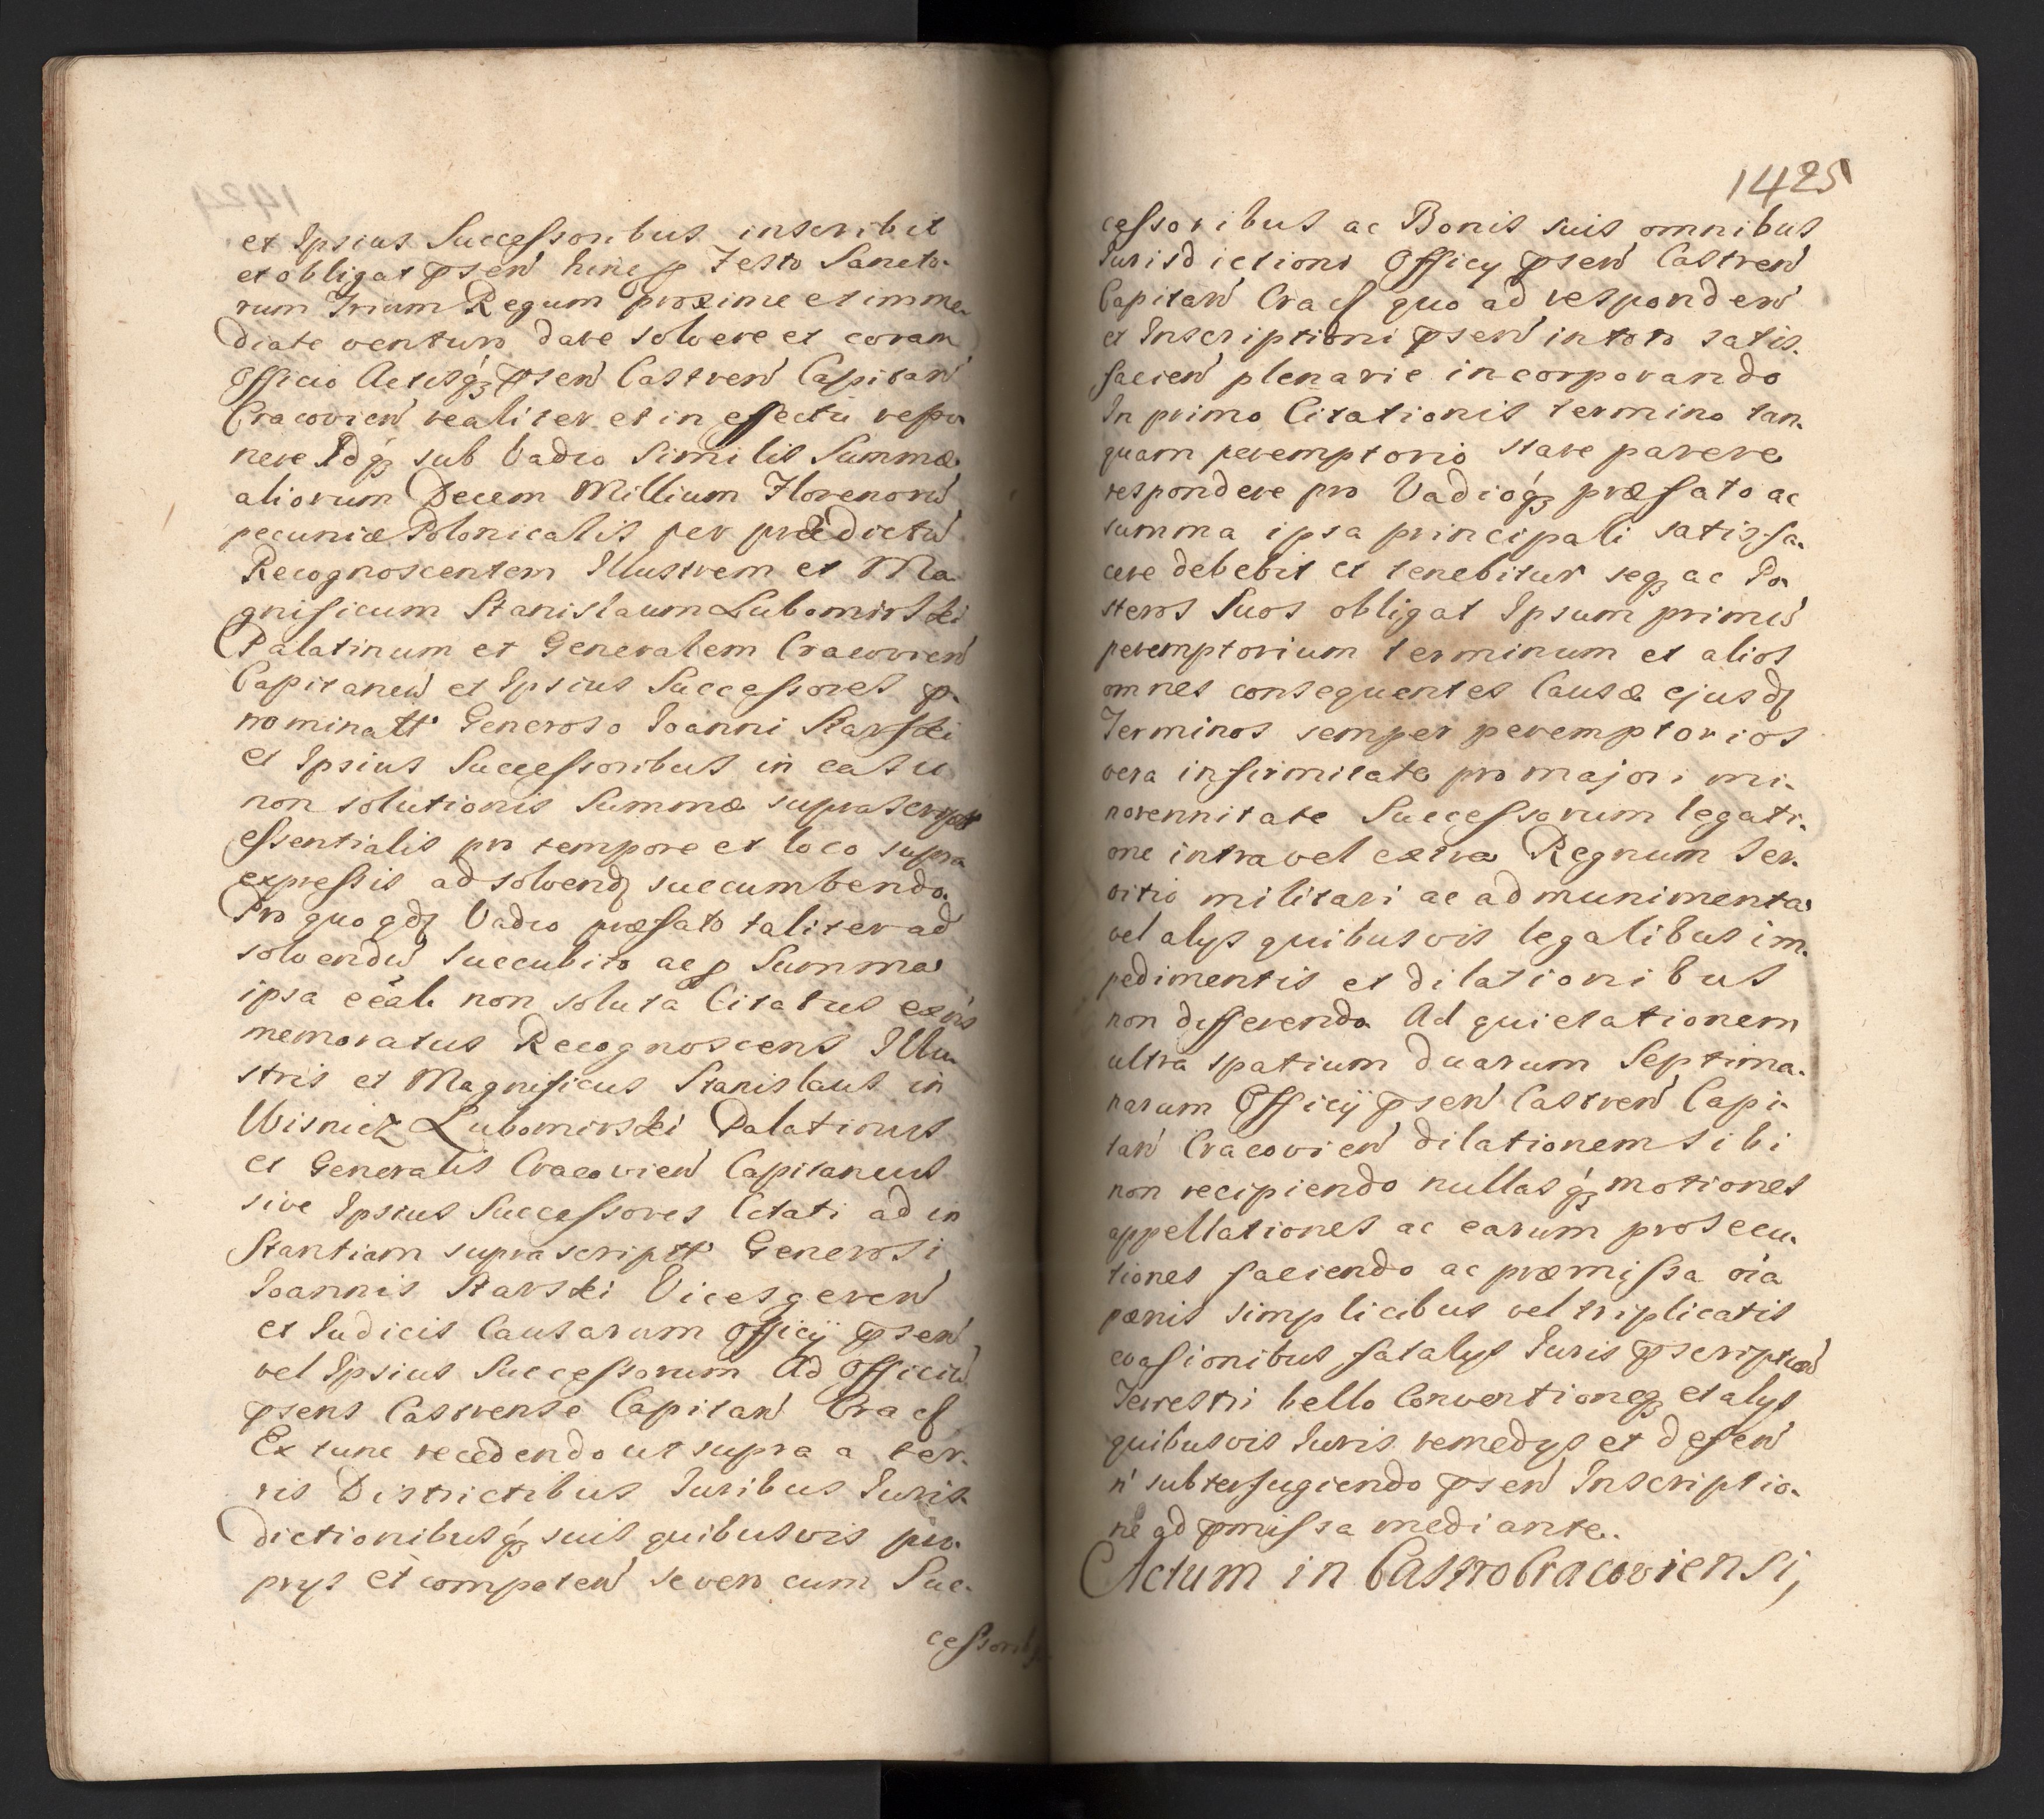 et Ipsius Successoribus inscribit
et obligat psen hinc p Festo Sancto-
rum Trium Regum proxime et imme-
diate venturo dare solvere et coram
Officio Actisq psen Castren Capitan
Cracovien realiter et in effectu repo-
nere Idq sub Vadio Similis Summæ
aliorum Decem Millium Florenorū
pecuniæ Polonicalis per prædictū
Recognoscentem Illustrem et Ma-
gnificum Stanislaum Lubomirski
Palatinum et Generalem Cracovien
Capitaneū et Ipsius Successores p-
nominatt Generoso Joanni Starski
et Ipsius Successoribus in casu
non solutionis Summæ suprascript
essentialis pro tempore et loco supra
expressis adsolvend succumbendo.
Pro quo qd Vadio præfato taliter ad
solvendū succubito ac p Summa
ipsa eeali non soluta Citatus
memoratus Recognoscens Illu-
stris et Magnificus Stanislaus in
Wisnicz Lubomirski Palatinus
et Generalis Cracovien Capitaneus
sive Ipsius Successores Citati ad in
stantiam suprascriptt Generosi
Joannis Starski Vicesgeren
et Iudicis Causarum Officij psen
vel Ipsius Successorum Ad Officiū
psens Castrense Capitan Crac
Ex tunc recedendo ut supra a ter-
ris Districtibus Iuribus Iuris-
dictionibusq suis quibusvis pro-
prys et competen se vero cum Suc-
cessorib
1425
cessoribus ac Bonis suis omnibus
Iurisdictioni Officy psen Castren
Capitan Crac quo ad responden
et Inscriptioni psen in toto satis-
facien plenarie incorporando
In primo Citationis termino tan-
quam peremptorio stare parere
respondere pro Vadioq præfato ac
summa ipsa principali satisfa-
cere debebit et tenebitur seq ac Po-
steros Suos obligat Ipsum primū
peremptorium terminum et alios
omnes consequentes Causæ ejusd
Terminos semper peremptorios
vera infirmitate pro majori mi-
norennitate Successorum legati-
one intra vel extra Regnum Ser-
vitio militari ac ad munimenta
vel alys quibusvis legalibus im-
pedimentis et dilationibus
non differendo Ad quietationem
ultra spatium duarum Septima-
narum Officij psen Castren Capi-
tan Cracovien dilationem sibi
non recipiendo nullasq motiones
appellationes ac earum prosecu-
tiones faciendo ac præmissa oia
pænis simplicibus vel triplicatis
evasionibus fatalys Iuris pscription
Terrestri bello Conventioneq et alys
quibusvis Iuris remedys et defen
n subterfugiendo psen Inscriptio-
ne ad pmissa mediante.
Actum in Castro Cracoviensi,